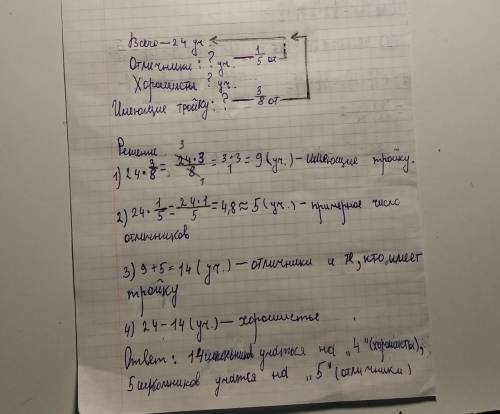 Всего — 24 уч.
Отличники: ? уч. — 1/5 от
Хорошисты ? уч.
Имеющие тройку: ? — 3/8 от
Решение
1) 24 · 3/8 = 24·3/8 = 3·3/1 = 9 (уч.) – имеющие тройку.
2) 24 · 1/5 = 24·1/5 = 4,8 ≈ 5 (уч.) – примерное число
отличников
3) 9 + 5 = 14 (уч.) – отличники и те, кто имеет
тройку
4) 24 – 14 (уч.) – хорошисты
Ответ: 14 школьников учаться на „4" (хорошисты),
5 школьников учатся на „5" (отличники)